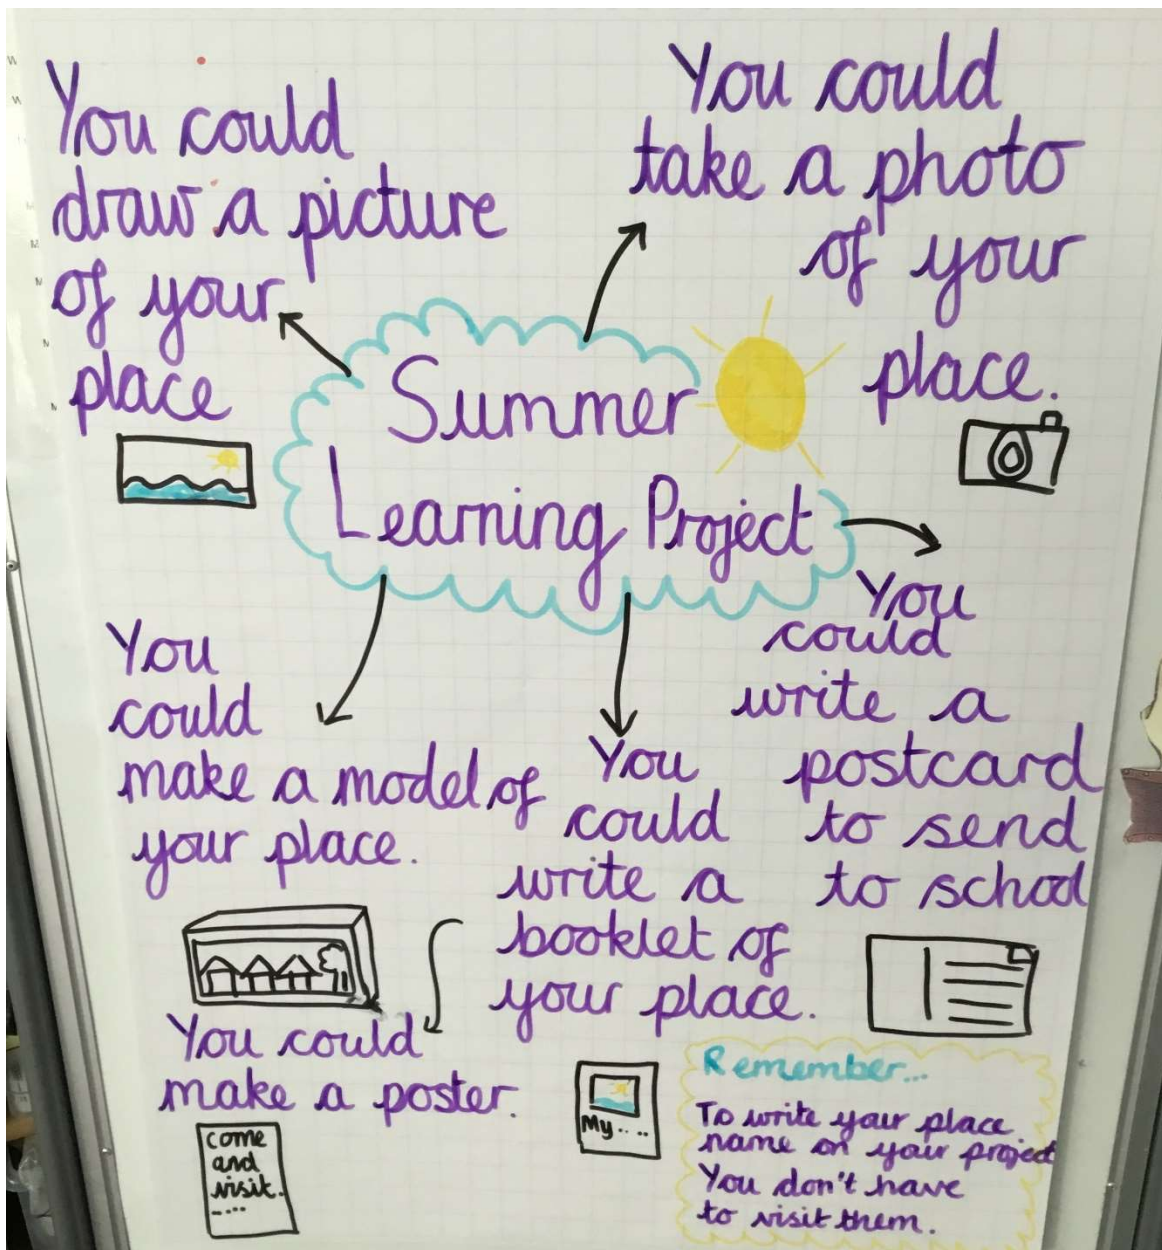 Summer
Learning Project
You could
draw a picture
of your
place
You could
take a photo
of your
place.
You
could
write a
postcard
to send
to school
You
could
write a
booklet of
your place.
My....
You
could
make a model of
your place.
You could
make a poster.
come
and
visit.
....
Remember...
To write your place
name on your project
You don't have
to visit them.